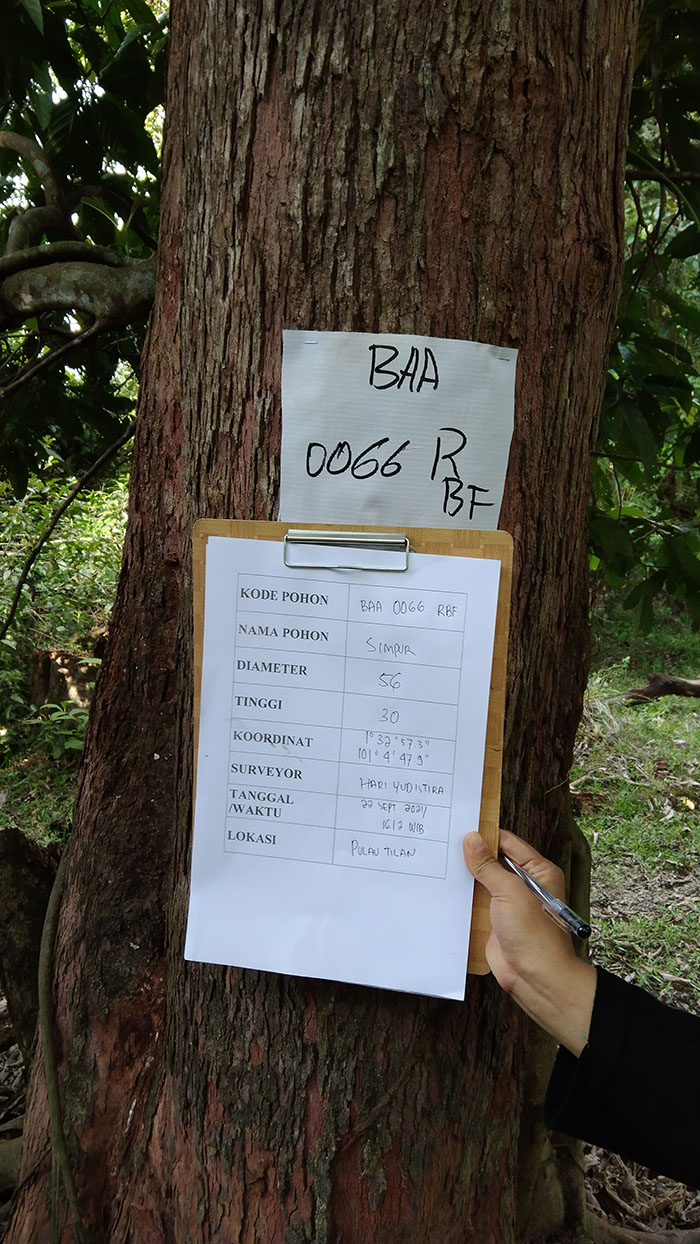 BAA
0066 R
BF
KODE POHON BAA 0066 RBF
NAMA POHON SIMPUR
DIAMETER 56
TINGGI 30
KOORDINAT 1° 32' 57.3"
101° 4' 47.9"
SURVEYOR HARI YUDISTIRA
TANGGAL 22 SEPT 2021/
/WAKTU 1612 WIB
LOKASI PULAU TILAN